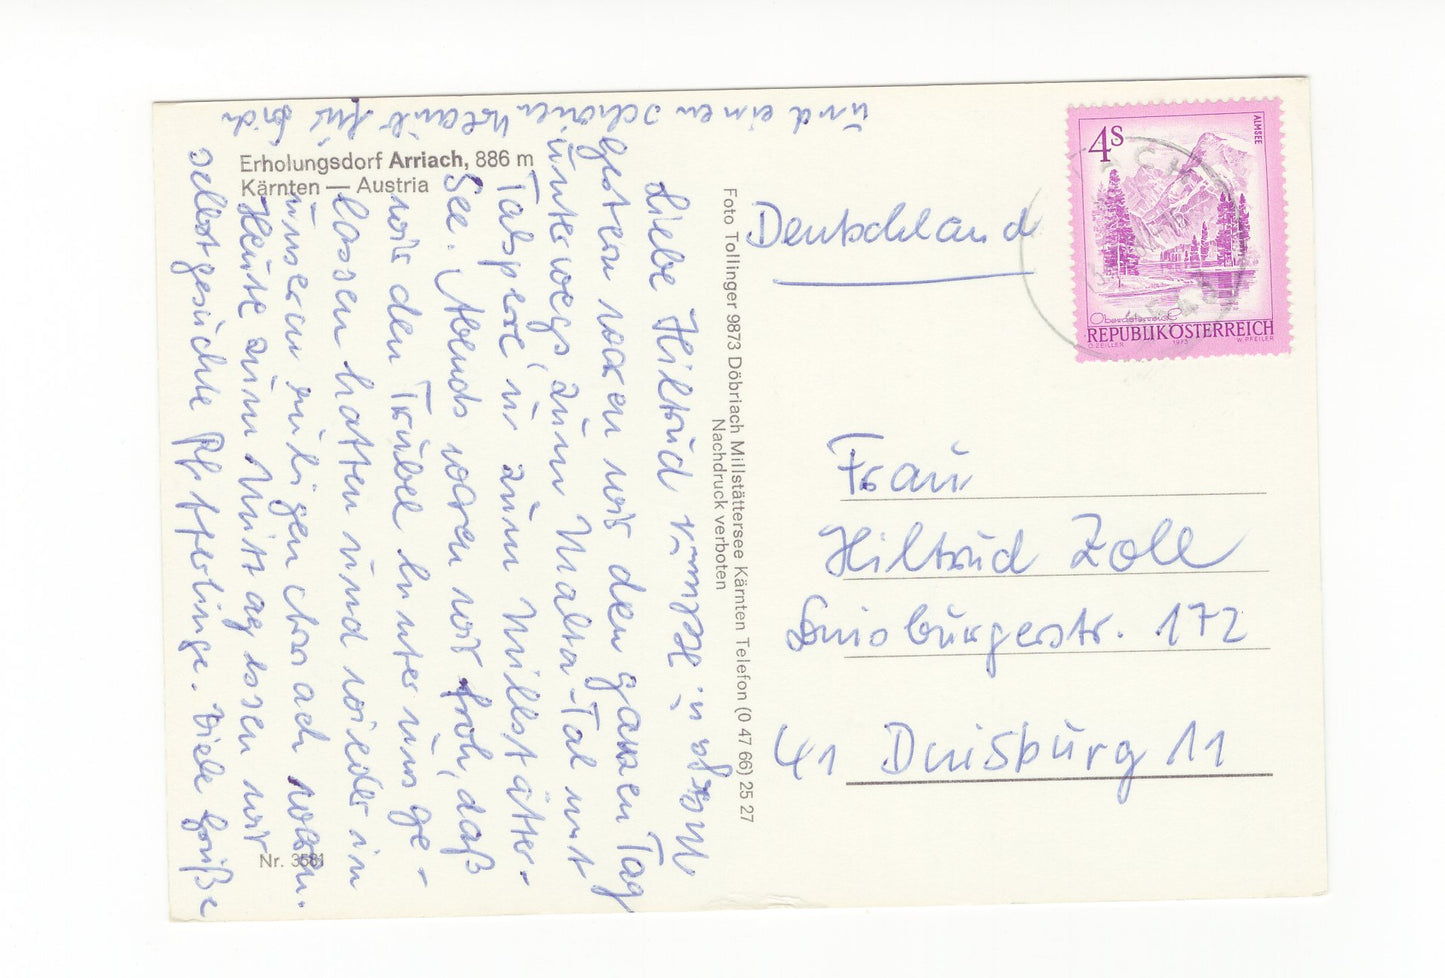 Erholungsdorf Arriach, 886 m
Kärnten — Austria
Liebe Hiltrud
Gestern waren wir den ganzen Tag
unterwegs, zum Malta-Tal mit
Talsperre, u. zum Millstätter-
See. Abends waren wir froh, daß
wir den Trubel hinter uns ge-
lassen hatten und wieder in
unserem ruhigen Arriach waren.
Heute zum Mittag essen wir
selbstgesuchte Pfifferlinge. Viele Grüße
und einen schönen Urlaub für Dich
Nr. 3581
Foto Tollinger 9873 Döbriach Millstättersee Kärnten Telefon (0 47 66) 25 27
Nachdruck verboten
Deutschland
4S
ALMSEE
Oberösterreich
REPUBLIK ÖSTERREICH
O. ZEILLER 1973 W. PFEILER
Frau
Hiltrud Zoll
Duisburgerstr. 172
41 Duisburg 11